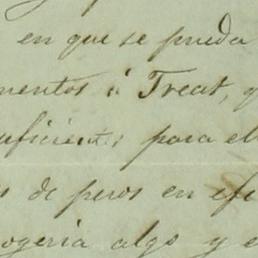 en que se pueda
mentos á Treat, q
uficientes para el
s de pesos en efe
ogeria algo y e